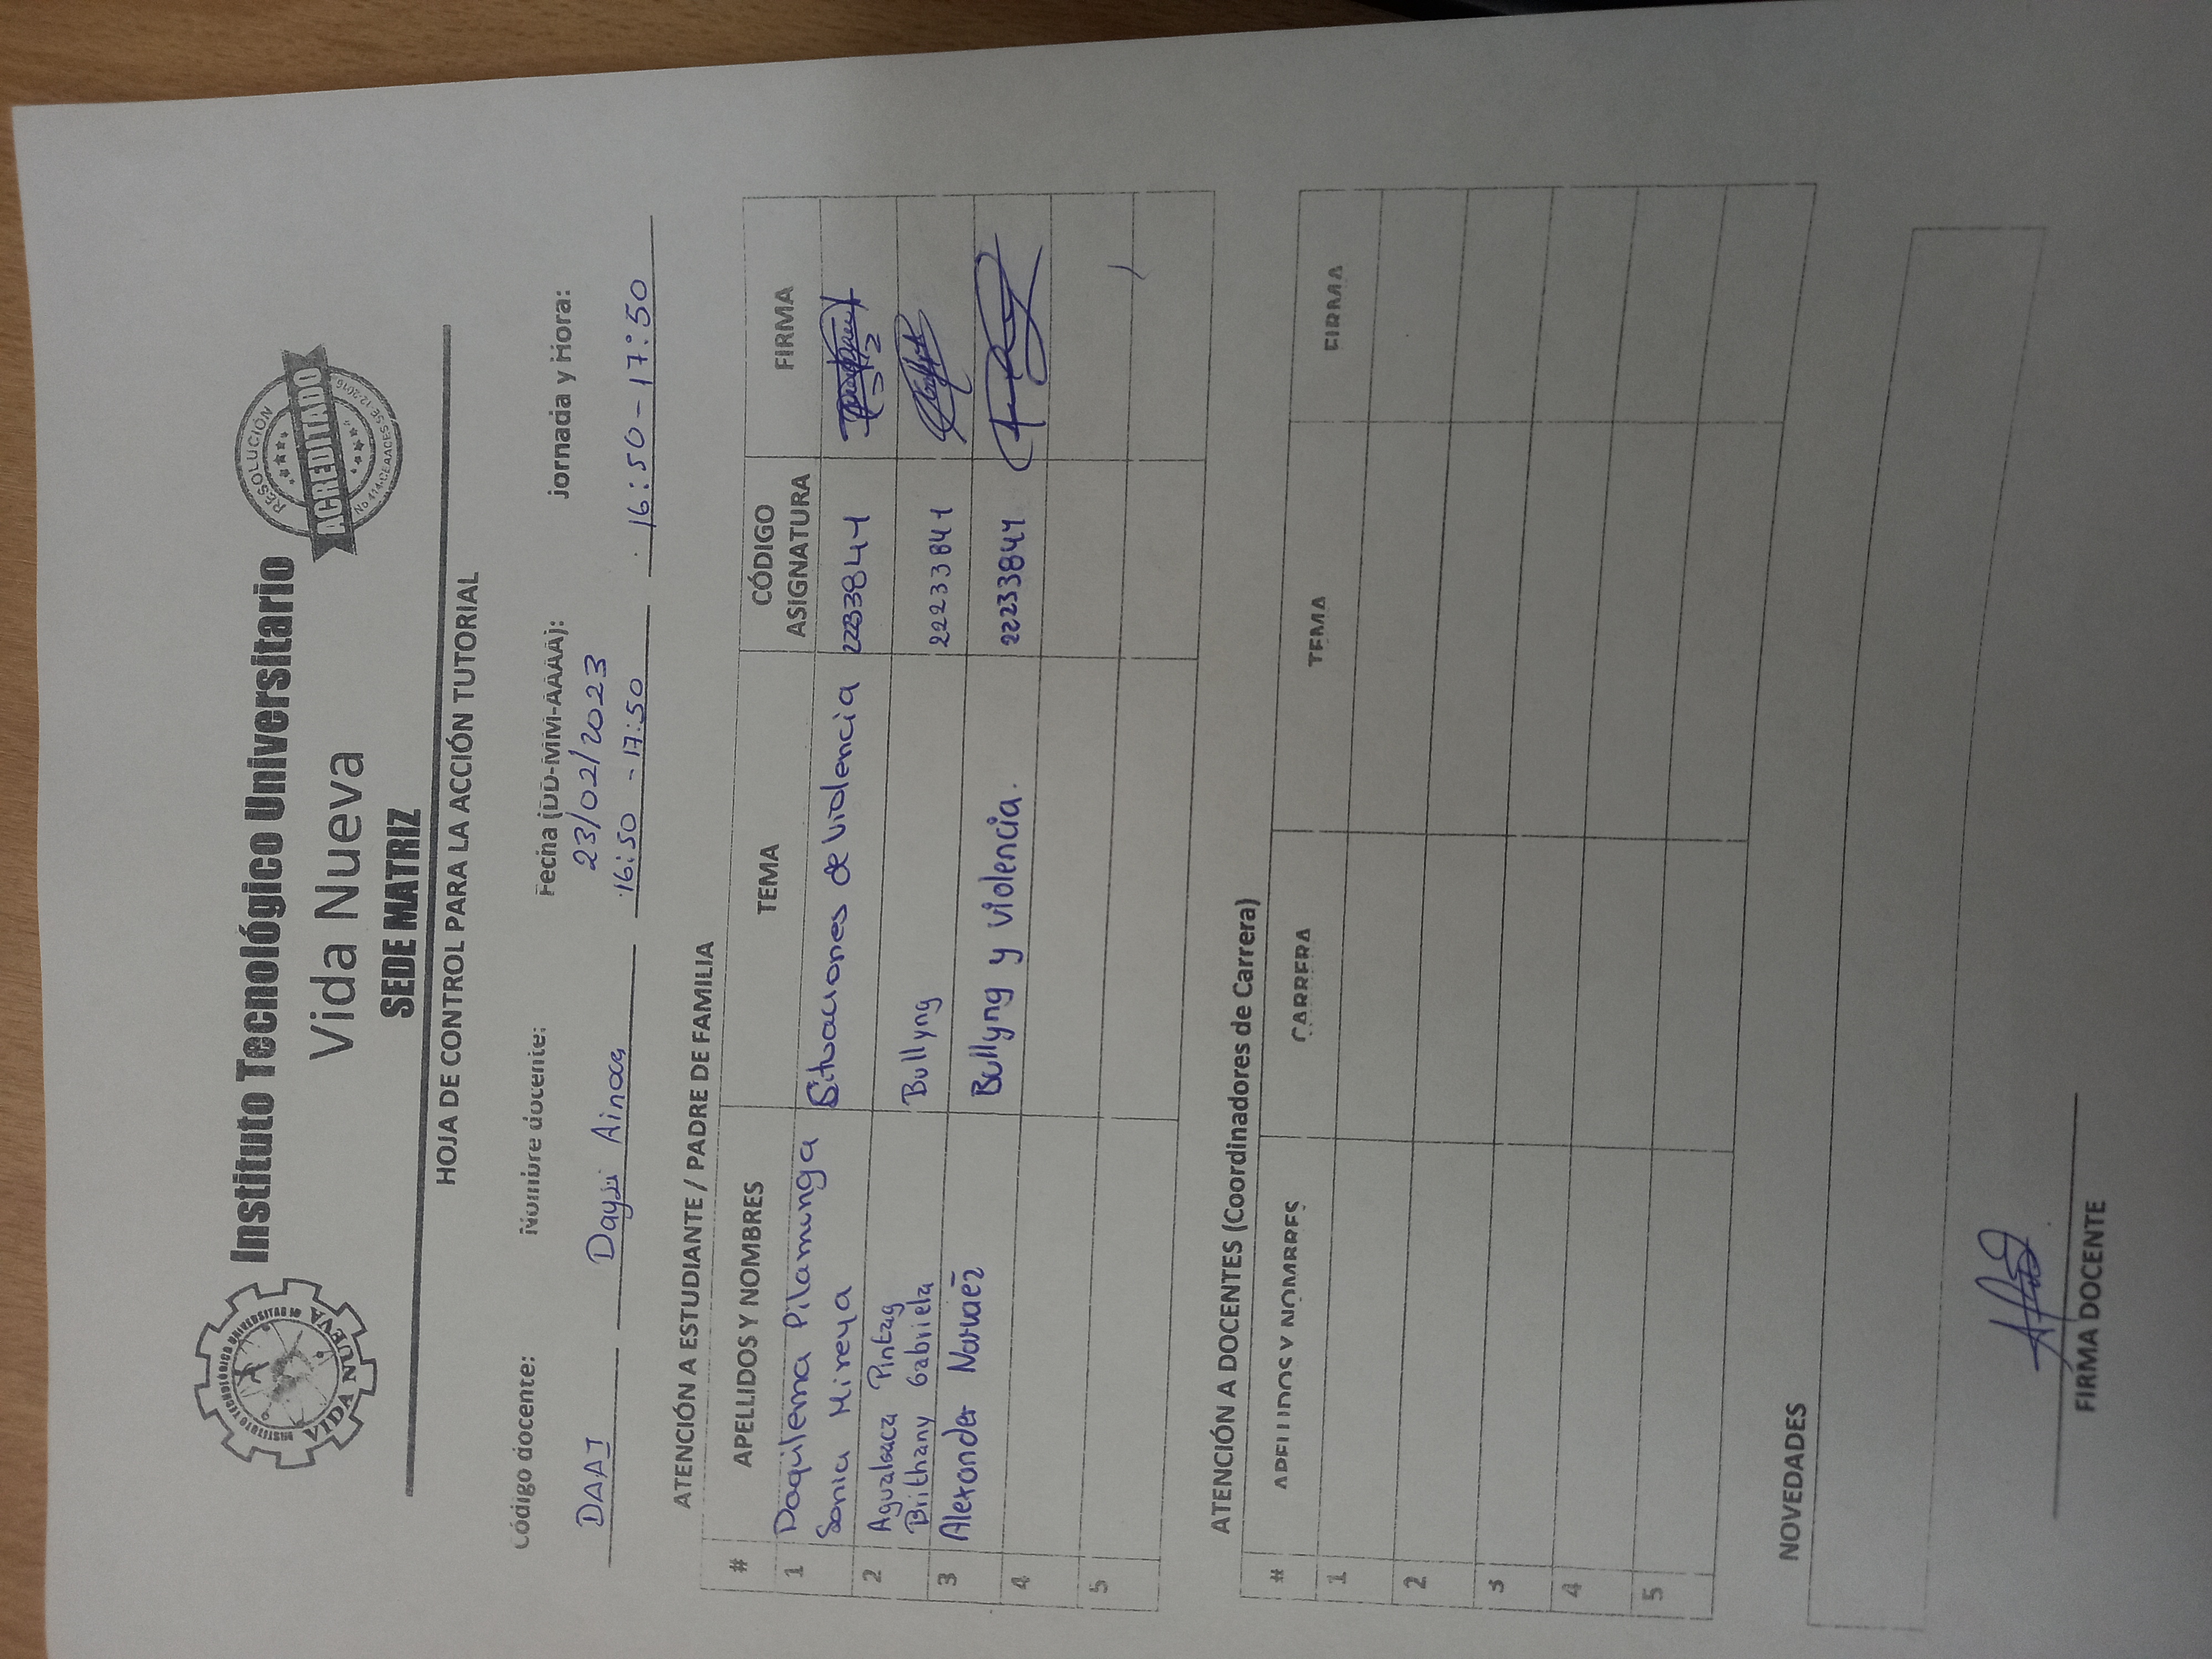 INSTITUTO TECNOLÓGICO UNIVERSITARIO
VIDA NUEVA
Instituto Tecnológico Universitario
Vida Nueva
SEDE MATRIZ
RESOLUCIÓN
ACREDITADO
No 414-CEAACES-SE-12-2016
HOJA DE CONTROL PARA LA ACCIÓN TUTORIAL
Código docente: Nombre docente: Fecha (DD-MM-AAAA): Jornada y Hora:
23/02/2023
DAAI Daysi 16:50 - 17:50 16:50 - 17:50
ATENCIÓN A ESTUDIANTE / PADRE DE FAMILIA
# APELLIDOS Y NOMBRES TEMA CÓDIGO ASIGNATURA FIRMA
1 Daquilema Pilamunga
Sonia Mireya Situaciones de violencia 2233841
2 Agualsaca Pintag
Brithany Gabriela Bullyng 22233841
3 Alexander Narvaez Bullyng y violencia. 22233841
4
5
ATENCIÓN A DOCENTES (Coordinadores de Carrera)
# APELLIDOS Y NOMBRES CARRERA TEMA FIRMA
1
2
3
4
5
NOVEDADES
FIRMA DOCENTE